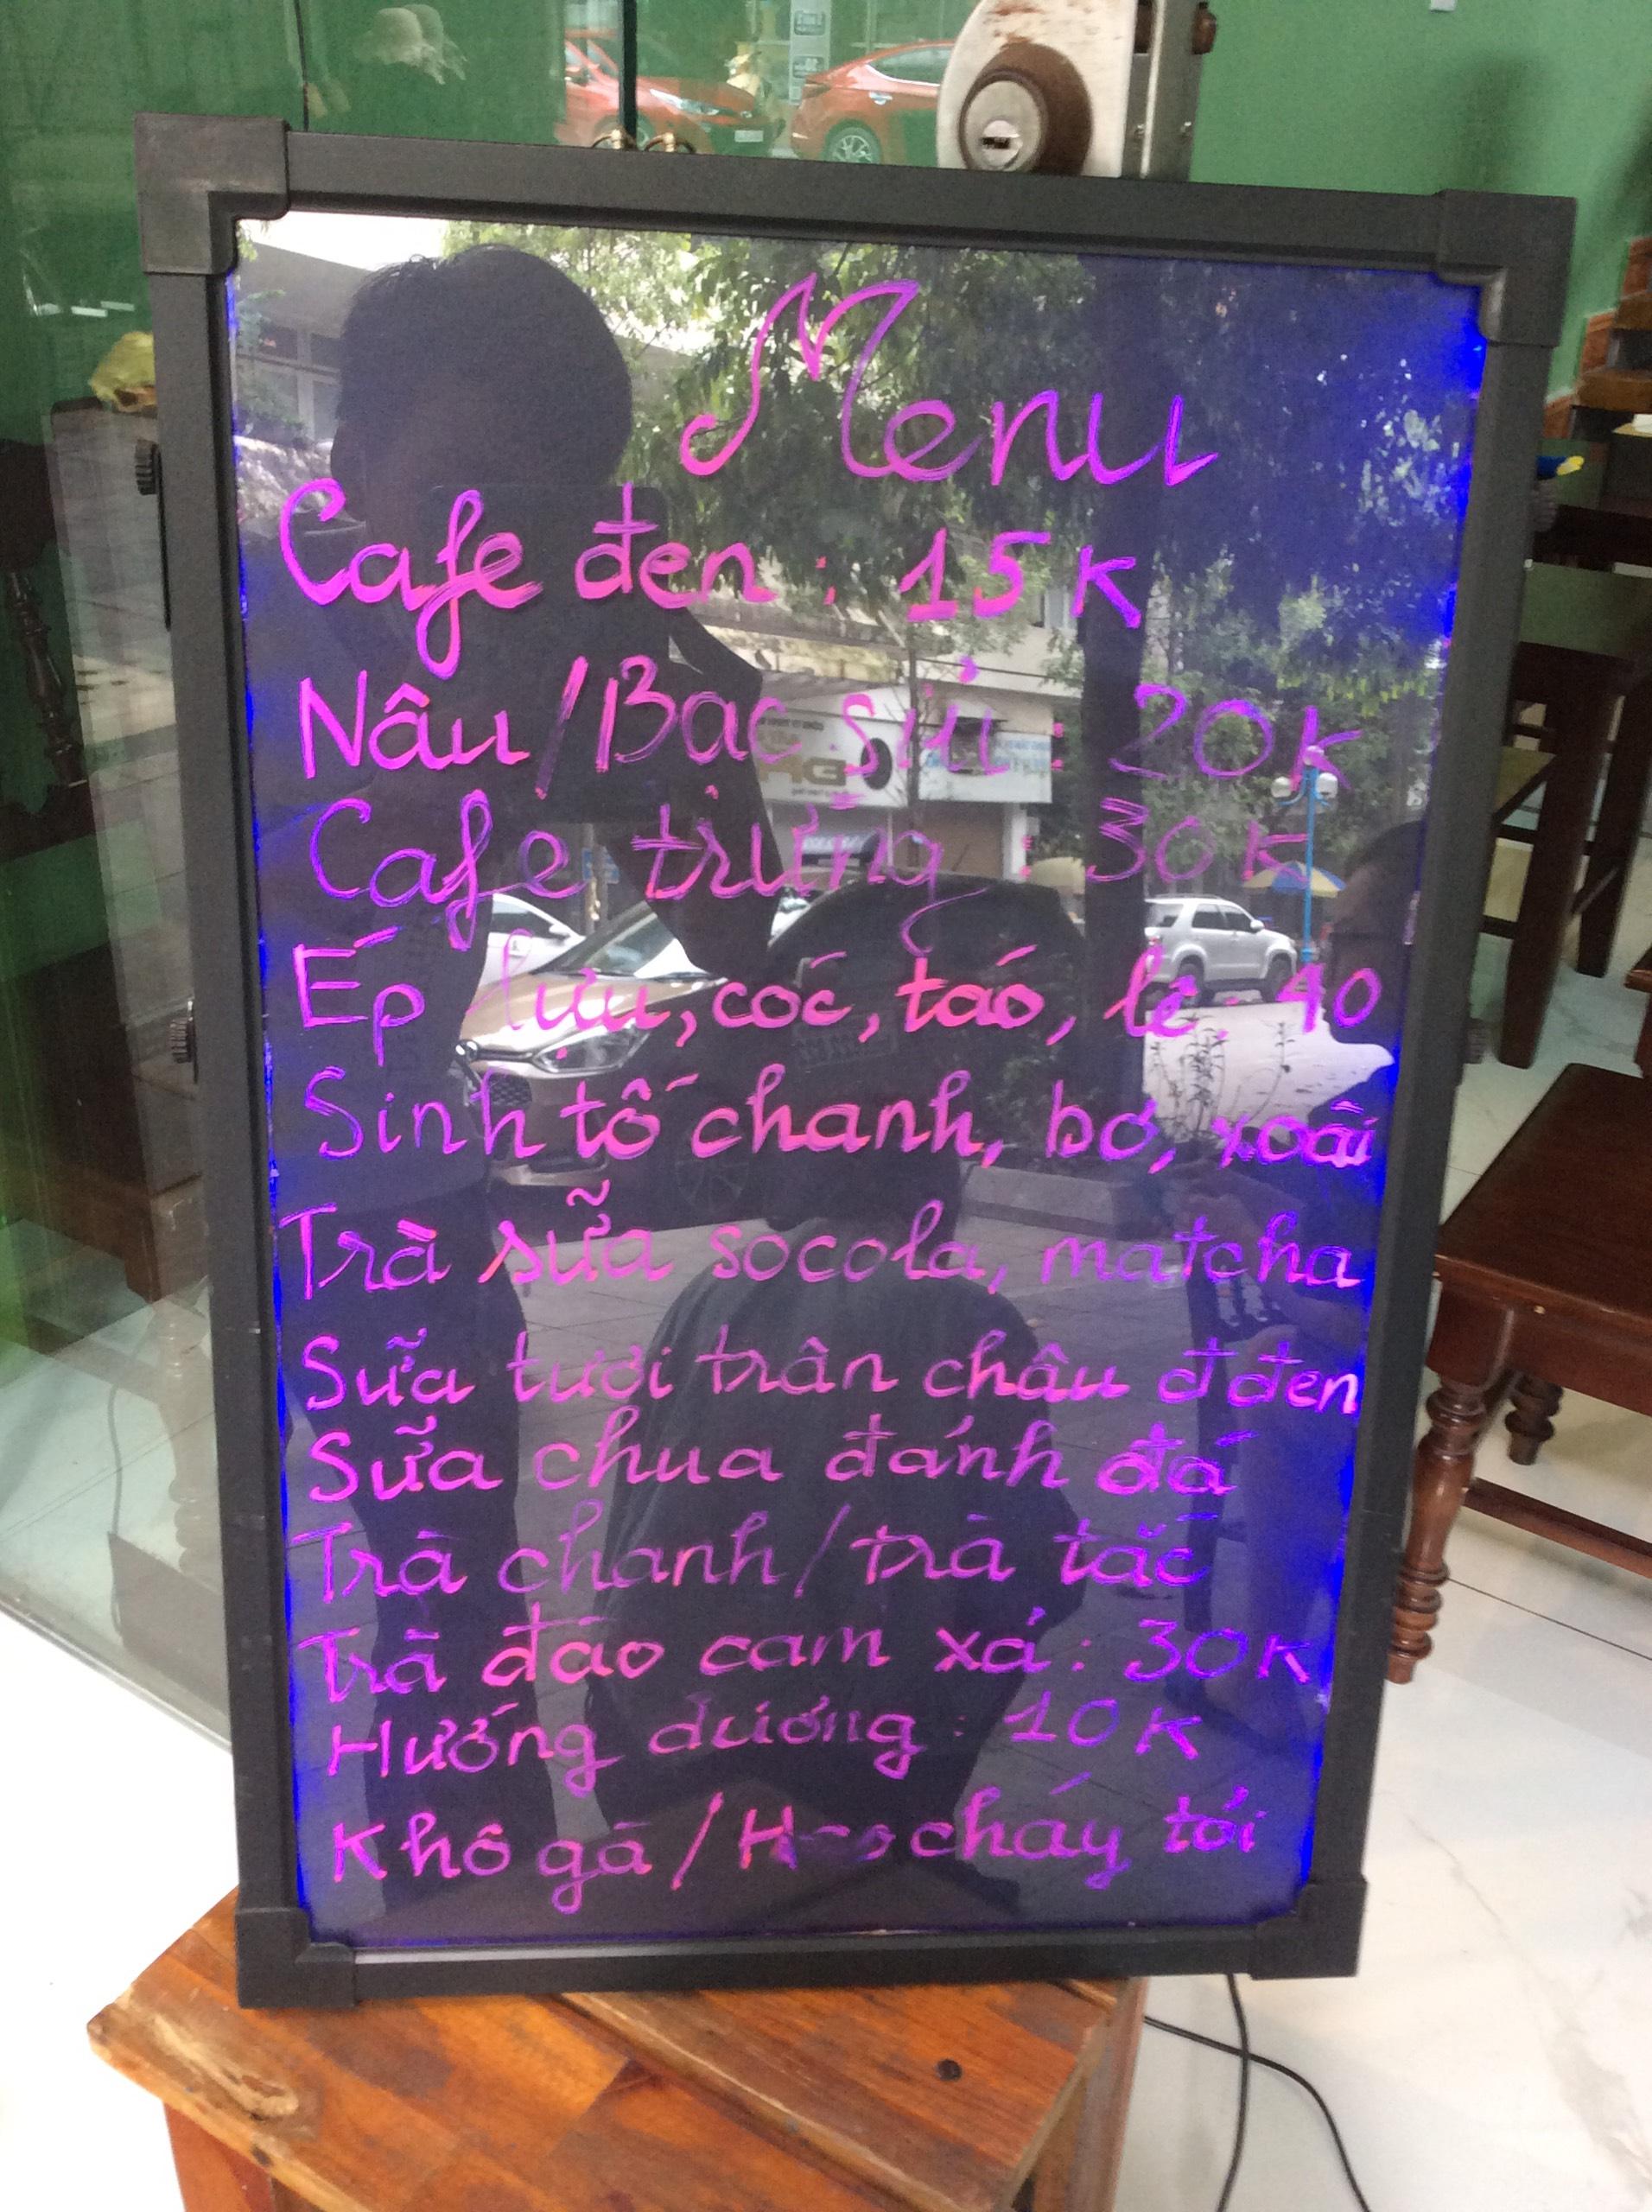 Menu
Cafe đen : 15K
Nâu/Bạc sỉu : 20K
Cafe trứng : 30K
Ép lựu, cóc, táo, lê : 40
Sinh tố chanh, bơ, xoài
Trà sữa socola, matcha
Sữa tươi trân châu đ đen
Sữa chua đánh đá
Trà chanh/trà tắc
Trà đào cam xả : 30K
Hướng dướng : 10K
Khô gà/ cháy tỏi